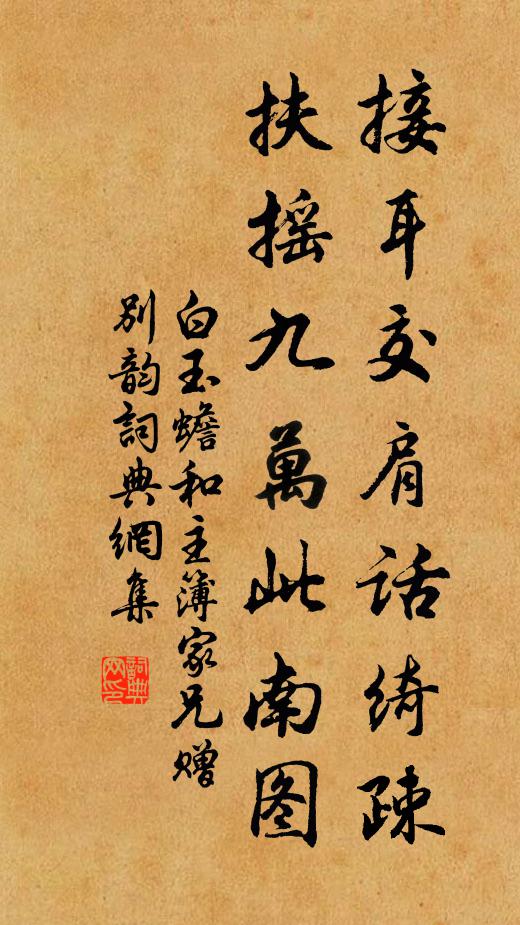 接耳交肩話綺疎
扶摇九萬此南图
白玉蟾和主簿家兄赠
别韵詞典網集
詞典网印